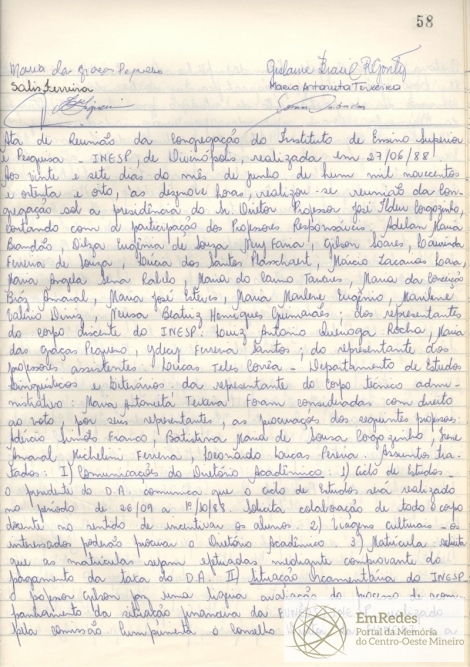 58
Maria das Graças Pequeno
Gislaine
Salis Ferreira
Maria Antonieta Teixeira
Ata de Reunião da Congregação do Instituto de Ensino Superior
e Pesquisa - INESP, de Divinópolis, realizada em 27/06/88.
Aos vinte e sete dias do mês de junho de hum mil novecentos
e oitenta e oito, às dezenove horas, realizou-se reunião da Con-
gregação sob a presidência do Sr. Diretor Professor José Ildeu
contando com a participação dos Professores Responsáveis: Adelan Maria
Brandão, Dilza Eugênia de Souza Gilson Soares,
Ferreira de Souza, dos Santos Márcio
Maria Ângela Sena Rabelo, Maria do Carmo Tavares, Maria da Conceição
Amaral, Maria José Esteves, Maria Marlene Eugênio, Marilene
Valério Diniz, Neusa Beatriz Henriques Guimarães; dos representantes
do corpo discente do INESP: Luiz Antonio Rocha, Maria
das Graças Pequeno, Ferreira Santos; do representante dos
professores assistentes: Lucas Teles - Departamento de Estudos
Linguísticos e Literários da representante do Corpo técnico admi-
nistrativo: Maria Antonieta Teixeira. Foram consideradas com direito
ao voto, por seus representantes, as procurações dos seguintes professores:
Franco, Batistina Maria de Sousa
Amaral Michelini Ferreira, Leonardo Lucas Pereira. Assuntos tra-
tados: I) Comunicações do Diretório Acadêmico: 1) Ciclo de Estudos -
o presidente do D.A. comunica que o ciclo de Estudos será realizado
no período de 26/09 a 1º/10/88. Solicita colaboração de todo o corpo
docente no sentido de incentivar os alunos. 2) Viagens culturais - os
interessados poderão procurar o Diretório Acadêmico. 3) Matrícula solicita
que as matrículas sejam efetuadas mediante comprovante do
pagamento da taxa do D.A. II) Situação Orçamentária do INESP
o professor Gilson faz uma ligeira avaliação do processo de acom-
panhamento da situação financeira da realizado
pela comissão. Cumprimenta o Conselho
EmRedes
Portal da Memória
do Centro-Oeste Mineiro